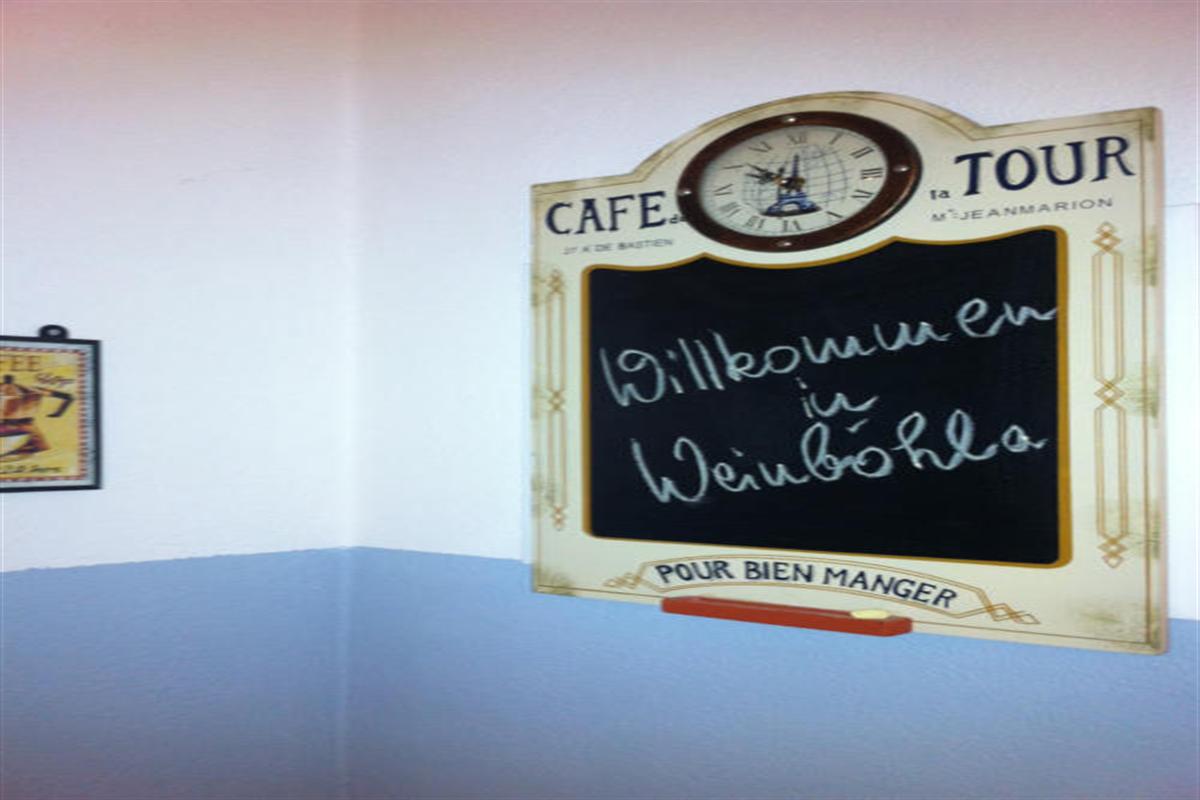 CAFE de la TOUR
27 R DE BASTIEN
JEANMARION
Willkommen
in
Weinböhla
POUR BIEN MANGER
FEE